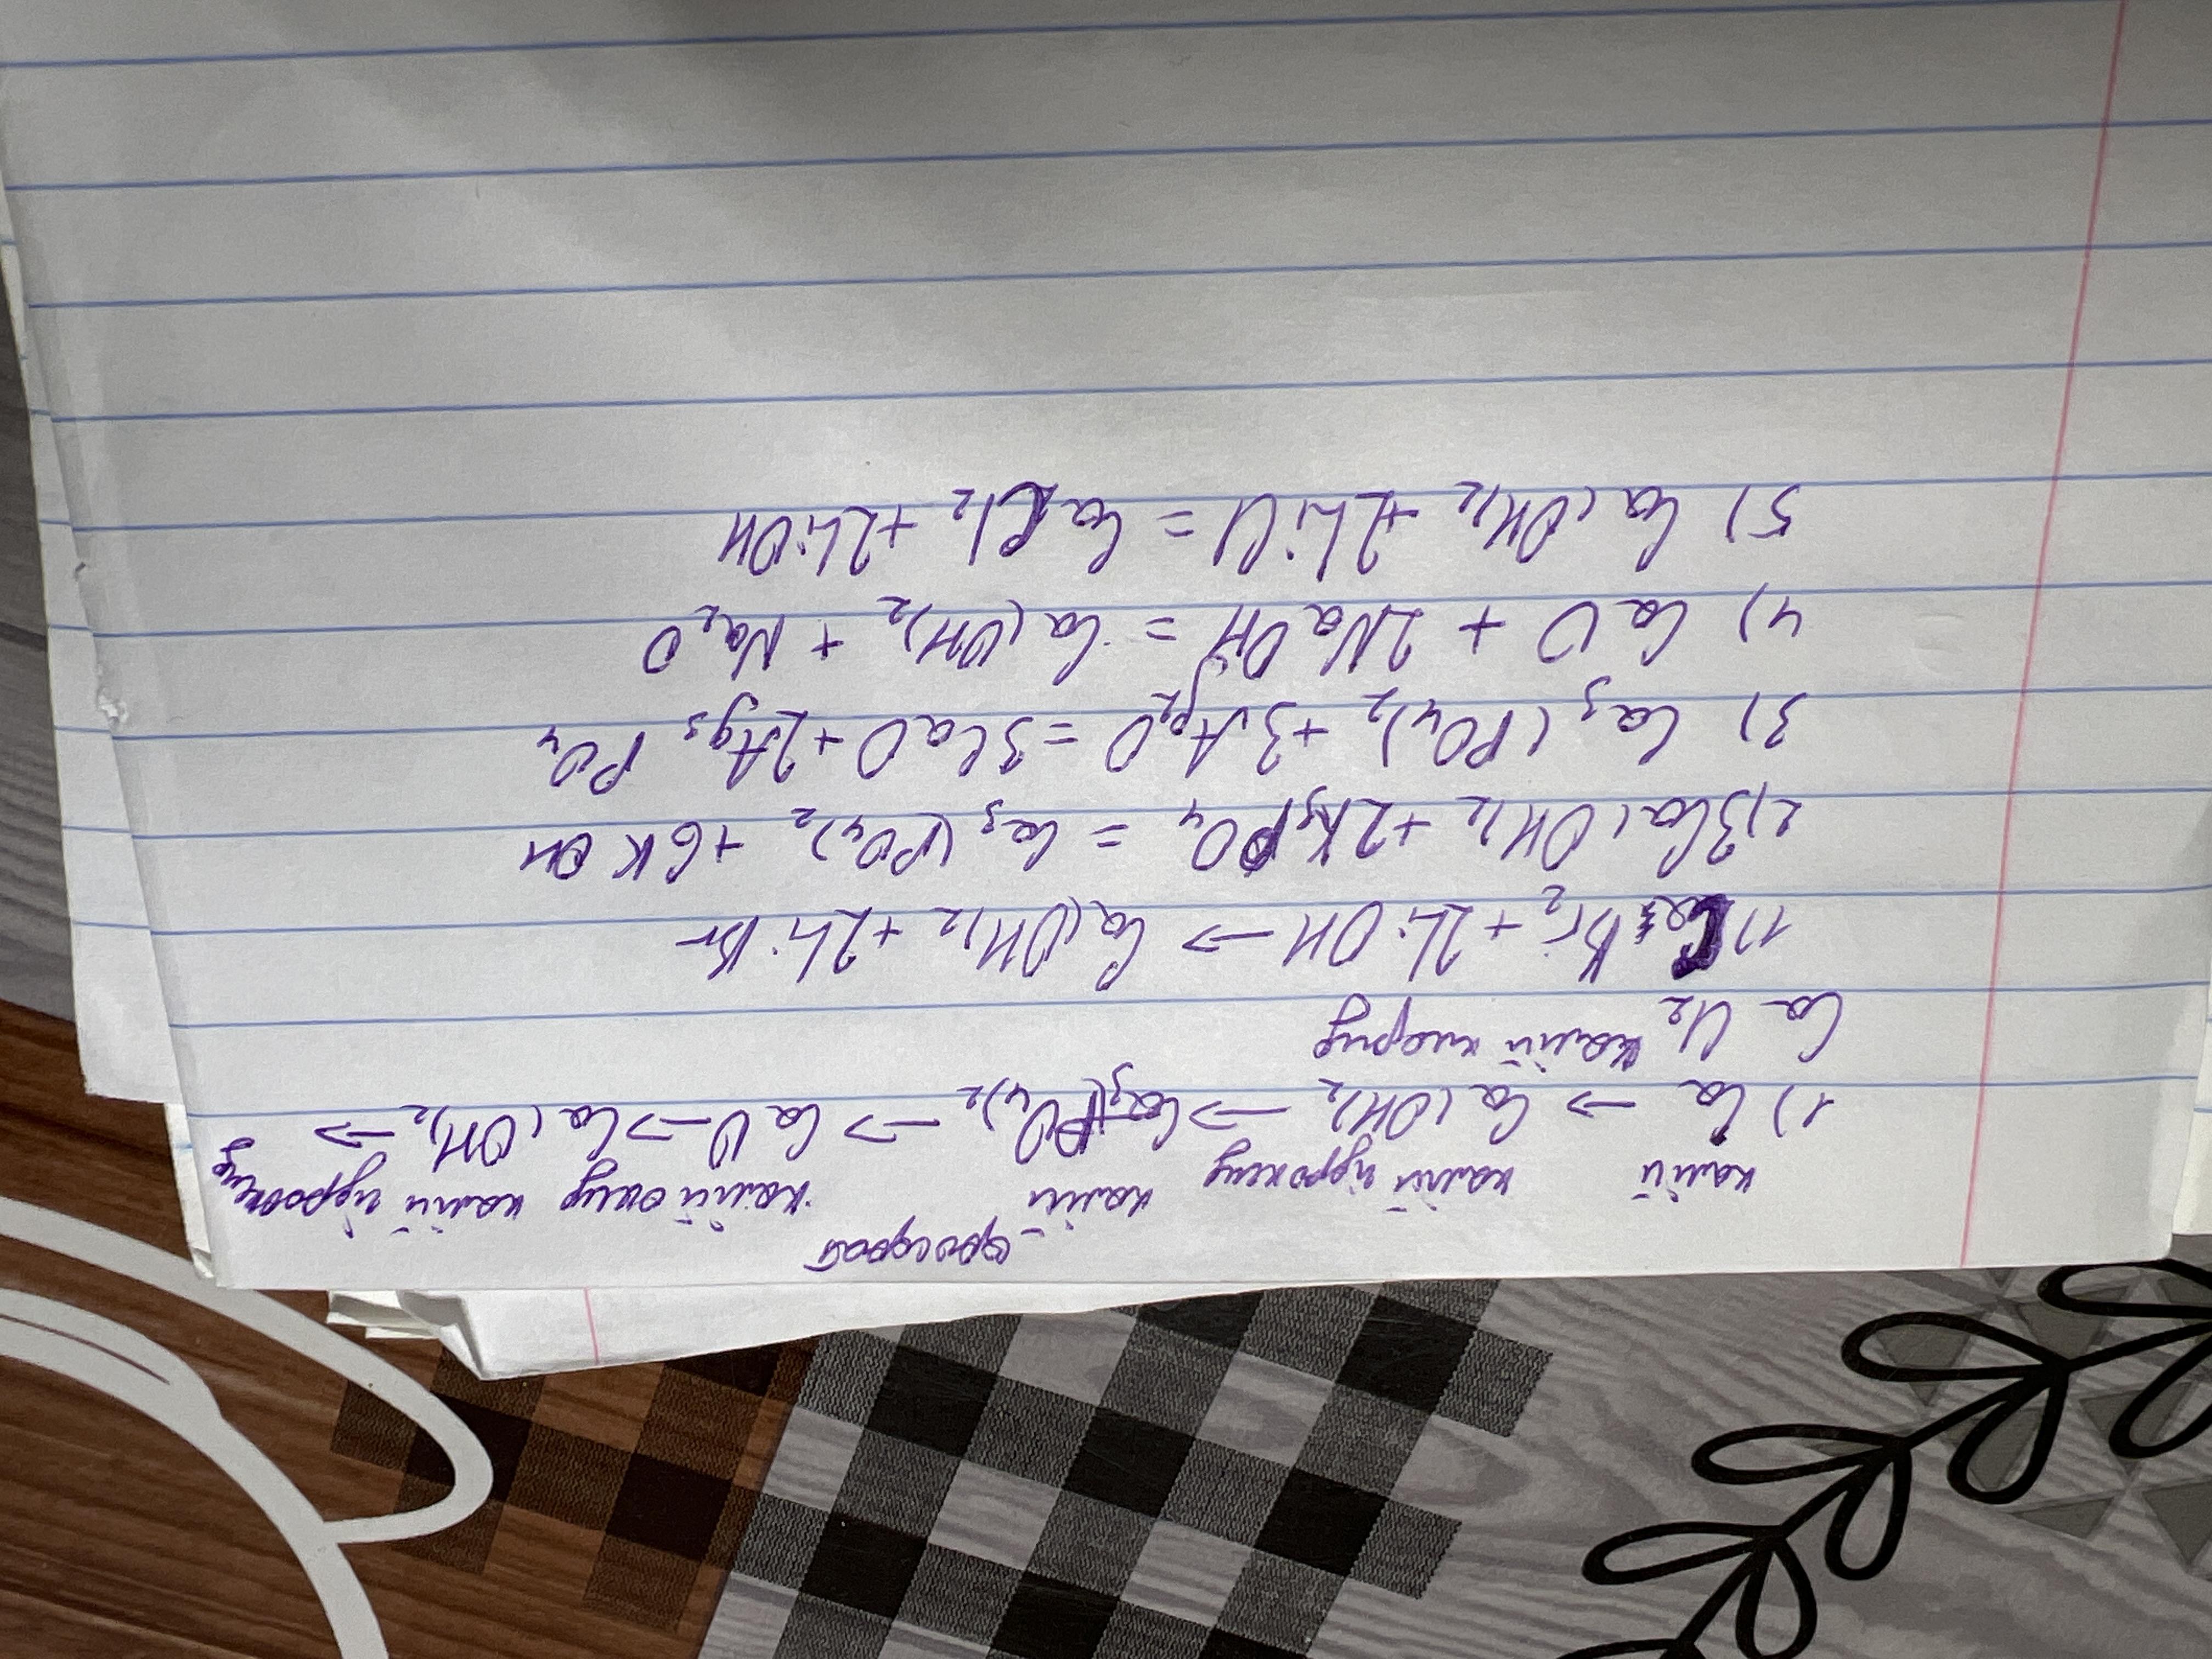 фосфат
калій калій гідроксид калій калій оксид калій гідроксид
1) Ca → Ca(OH)₂ → Ca₃(PO₄)₂ → CaO → Ca(OH)₂ →
CaCl₂ калій хлорид
1) CaBr₂ + 2LiOH → Ca(OH)₂ + 2LiBr
2) 3Ca(OH)₂ + 2K₃PO₄ = Ca₃(PO₄)₂ + 6KOH
3) Ca₃(PO₄)₂ + 3Ag₂O = 3CaO + 2Ag₃PO₄
4) CaO + 2NaOH = Ca(OH)₂ + Na₂O
5) Ca(OH)₂ + 2LiCl = CaCl₂ + 2LiOH